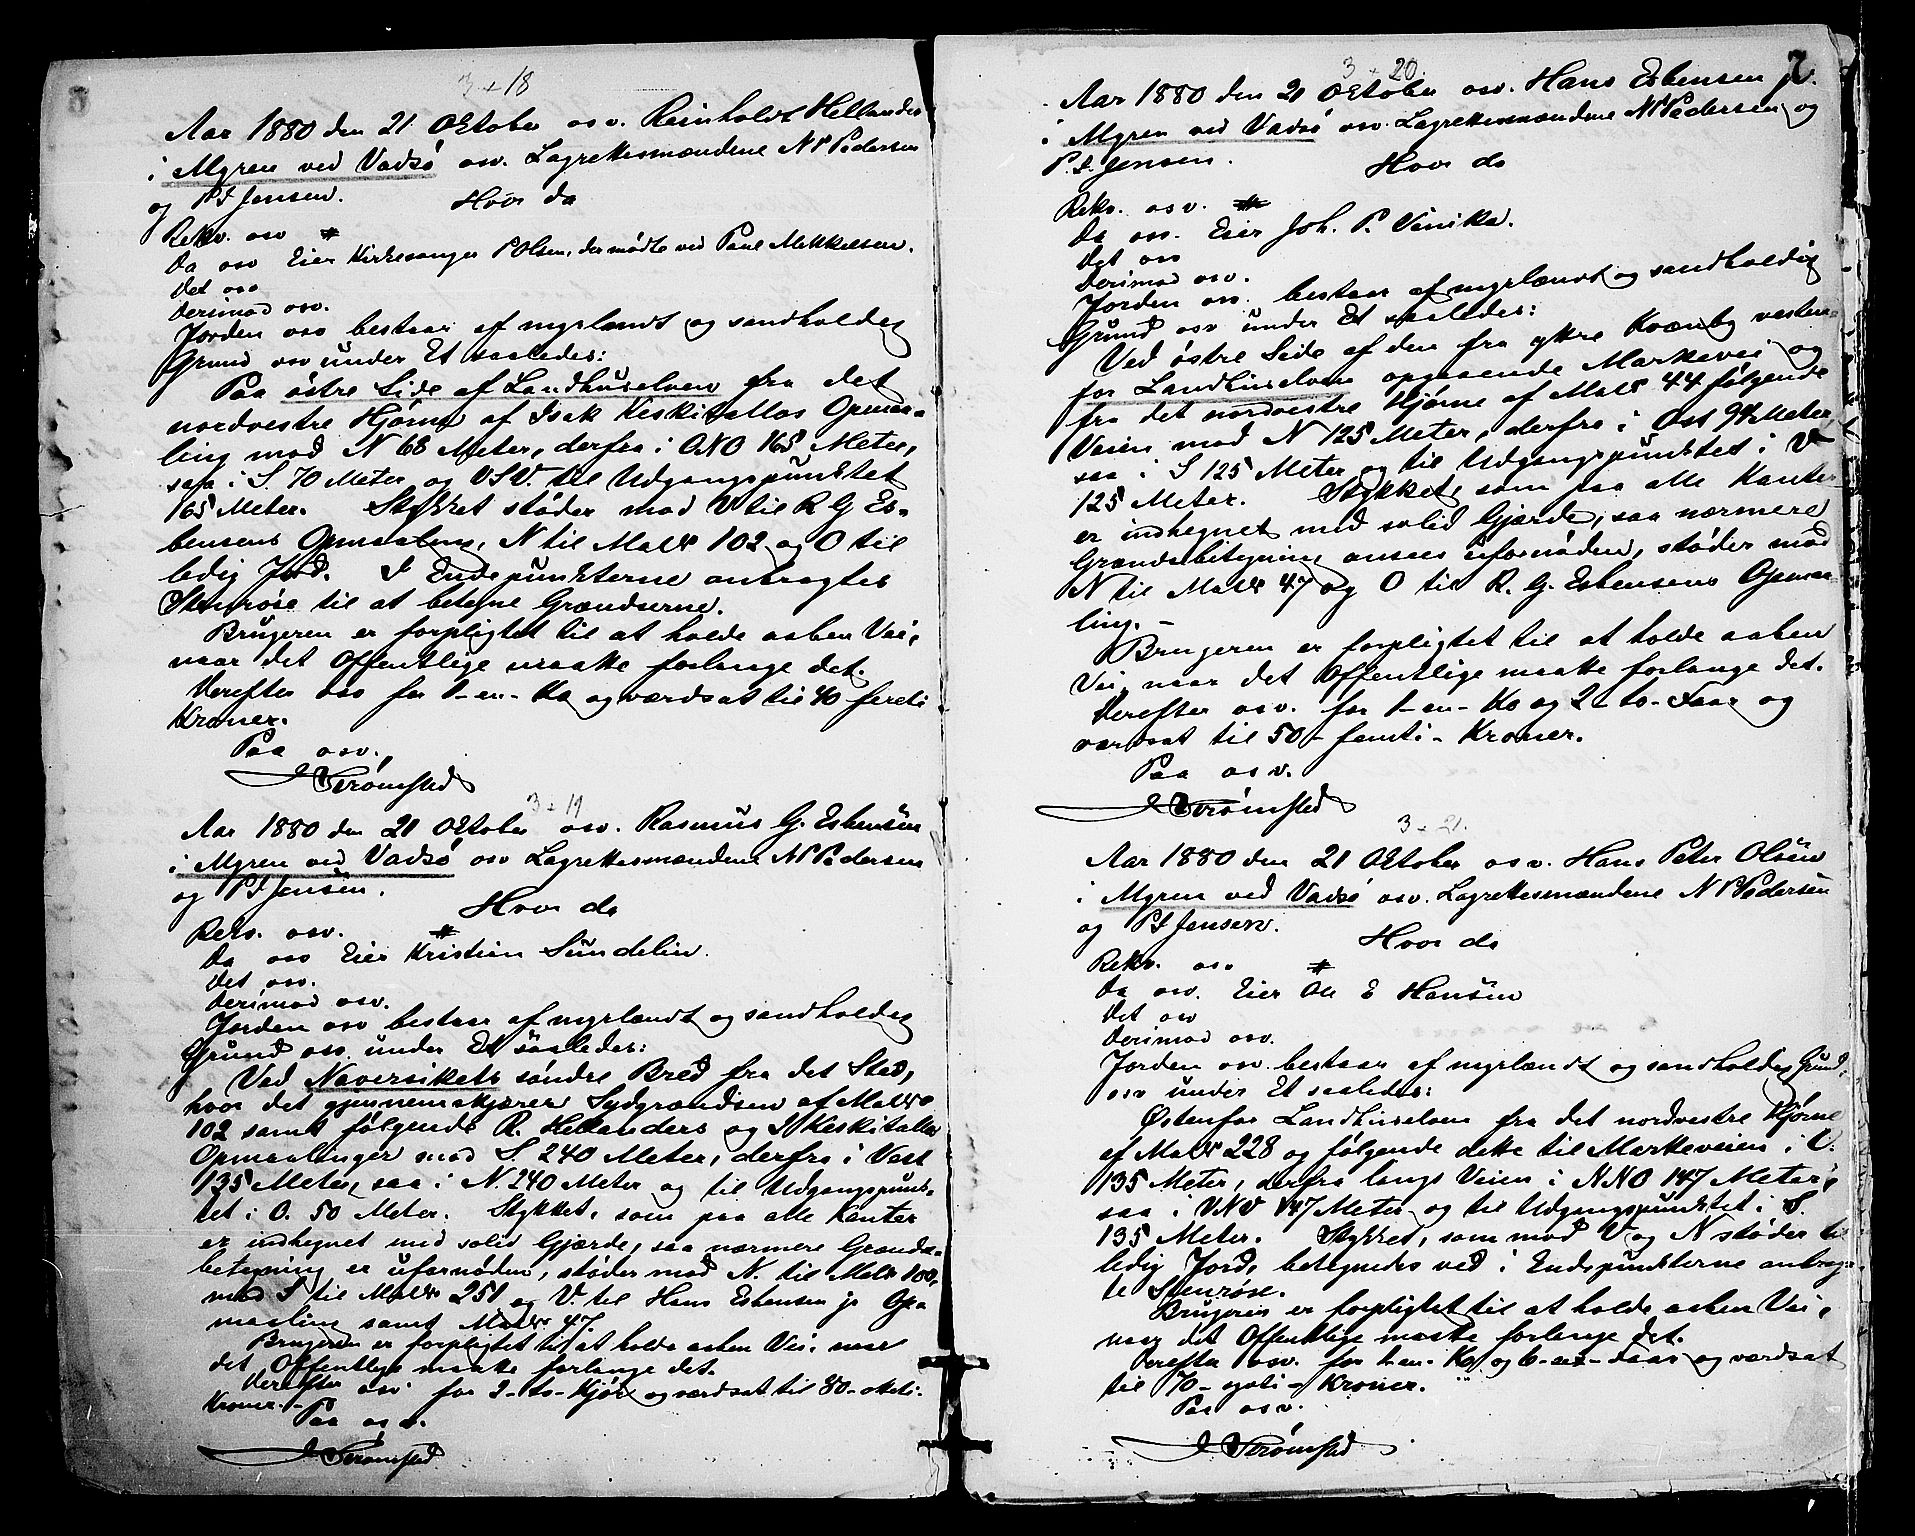 3 + 18
Aar 1880 den 21 Oktober osv. Reinholdt Hellander
i Myren ved Vadsö osv. Lagrettesmændene N P Pedersen
og P I Jensen. Hvor da
Rekv. osv #
Da osv Eier Kirkesanger P Olsen, der mødte ved Paul Mekkelsen.
Det osv
Derimod osv.
Jorden osv bestaar af myrlændt og sandholdig
Grund osv under Et saaledes:
Paa östre Side af Landhuselven fra det
nordvestre Hjørne af Isak Keskitallos Opmaa-
ling mod N 68 Meter, derfra i ONO 165 Meter,
saa i S. 70 Meter og VSV. til Udgangspunktet
165 Meter. Stykket støder mod V til R G Es-
bensens Opmaaling, N til Mal No 102 og O til
ledig Jord. I Endepunkterne anbragtes
Stenrøse til at betegne Grændserne.
Brugeren er forpligtet til at holde aaben Vei,
naar det Offentlige maatte forlange det.
Derefter osv for 1-en-Ko og værdsat til 40 fireti
Kroner.
Paa osv.
J Strømsted
3 + 19
Aar 1880 den 21 Oktober osv. Rasmus G. Esbensen
i Myren ved Vadsö osv Lagrettesmændene N P Pedersen
og P I Jensen.
Hvor da
Rekv. osv. #
Da osv Eier Kristian Sundelin.
Det osv.
Derimod osv.
Jorden osv bestaar af myrlændt og sandholdig
Grund osv. under Et saaledes:
Ved Naversikets søndre Bred fra det Sted,
hvor det gjennemskjærer Sydgrændsen af Mal No
102 samt følgende R. Hellanders og I Keskitallos
Opmaalinger mod S. 240 Meter, derfra i Vest
135 Meter, saa i N. 240 Meter og til Udgangspunk-
tet i O. 50 Meter. Stykket, som paa alle Kanter
er indhegnet med solid Gjærde, saa nærmere Grændse-
betegning er ufornøden, støder mod N. til Mal No 100,
mod S til Mal No 251 og V. til Hans Esbensen jr Opm
maaling samt Mal No 47.
Brugeren er forpligtet til at holde aaben Vei, naar
det Offentlige maatte forlange det.
Derefter osv for 2-to-Kjør og værdsat til 80-otteti-
Kroner.-
Paa osv.
J Strømsted
7
3 + 20
Aar 1880 den 21 Oktober osv. Hans Esbensen jr.
i Myren ved Vadsö osv Lagrettesmændene N P Pedersen og
P. I. Jensen. Hvor da
Rekv. osv. #
Da osv. Eier Joh. P. Vinika.
Det osv
Derimod osv.
Jorden osv. bestaar af myrlændt og sandholdig
Grund osv under Et saaledes:
Ved östre Side af den fra ytre Kvænby vesten-
for Landhuselven opgaaende Markevei og
fra det nordvestre Hjørne af Mal No 44 følgende
Veien mod N 125 Meter, derfra i Ost 94 Meter
saa i S 125 Meter og til Udgangspunktet i V
125 Meter. Stykket, som paa alle Kanter
er indhegnet med solid Gjærde, saa nærmere
Grændsebetegning ansees ufornøden, støder mod
N til Mal No 47 og O til R. G. Esbensens Opmaa-
ling.-
Brugeren er forpligtet til at holde aaben
Vei, naar det Offentlige maatte forlange det.
Derefter osv. for 1-en-Ko og 2-to-Faar og
værdsat til 50-femti-Kroner.
Paa osv.
J Strømsted
3 + 21.
Aar 1880 den 21 Oktober osv. Hans Peter Olsen
i Myren ved Vadsö osv. Lagrettesmændene N P Pedersen
og P I Jensen.
Hvor da
Rekv. osv #
Da osv. Eier Ole E Hansen
Det osv
Derimod osv.
Jorden osv. bestaar af myrlændt og sandholdig Grund,
osv under Et saaledes:
Østenfor Landhuselven fra det nordvestre Hjørne
af Mal No 228 og følgende dette til Markeveien i O.
135 Meter, derfra langs Veien i NNO 147 Meter,
saa i VNV 147 Meter og til Udgangspunktet i S.
135 Meter. Stykket, som mod V og N støder til
ledig Jord, betegnedes ved i Endepunkterne anbrag-
te Stenrøse.
Brugeren er forpligtet til at holde aaben Vei,
naar det Offentlige maatte forlange det.
Derefter osv. for 1-en-Ko og 6-sex-Faar og værdsat
til 70-sytti-Kroner.
Paa osv.
J Strømsted